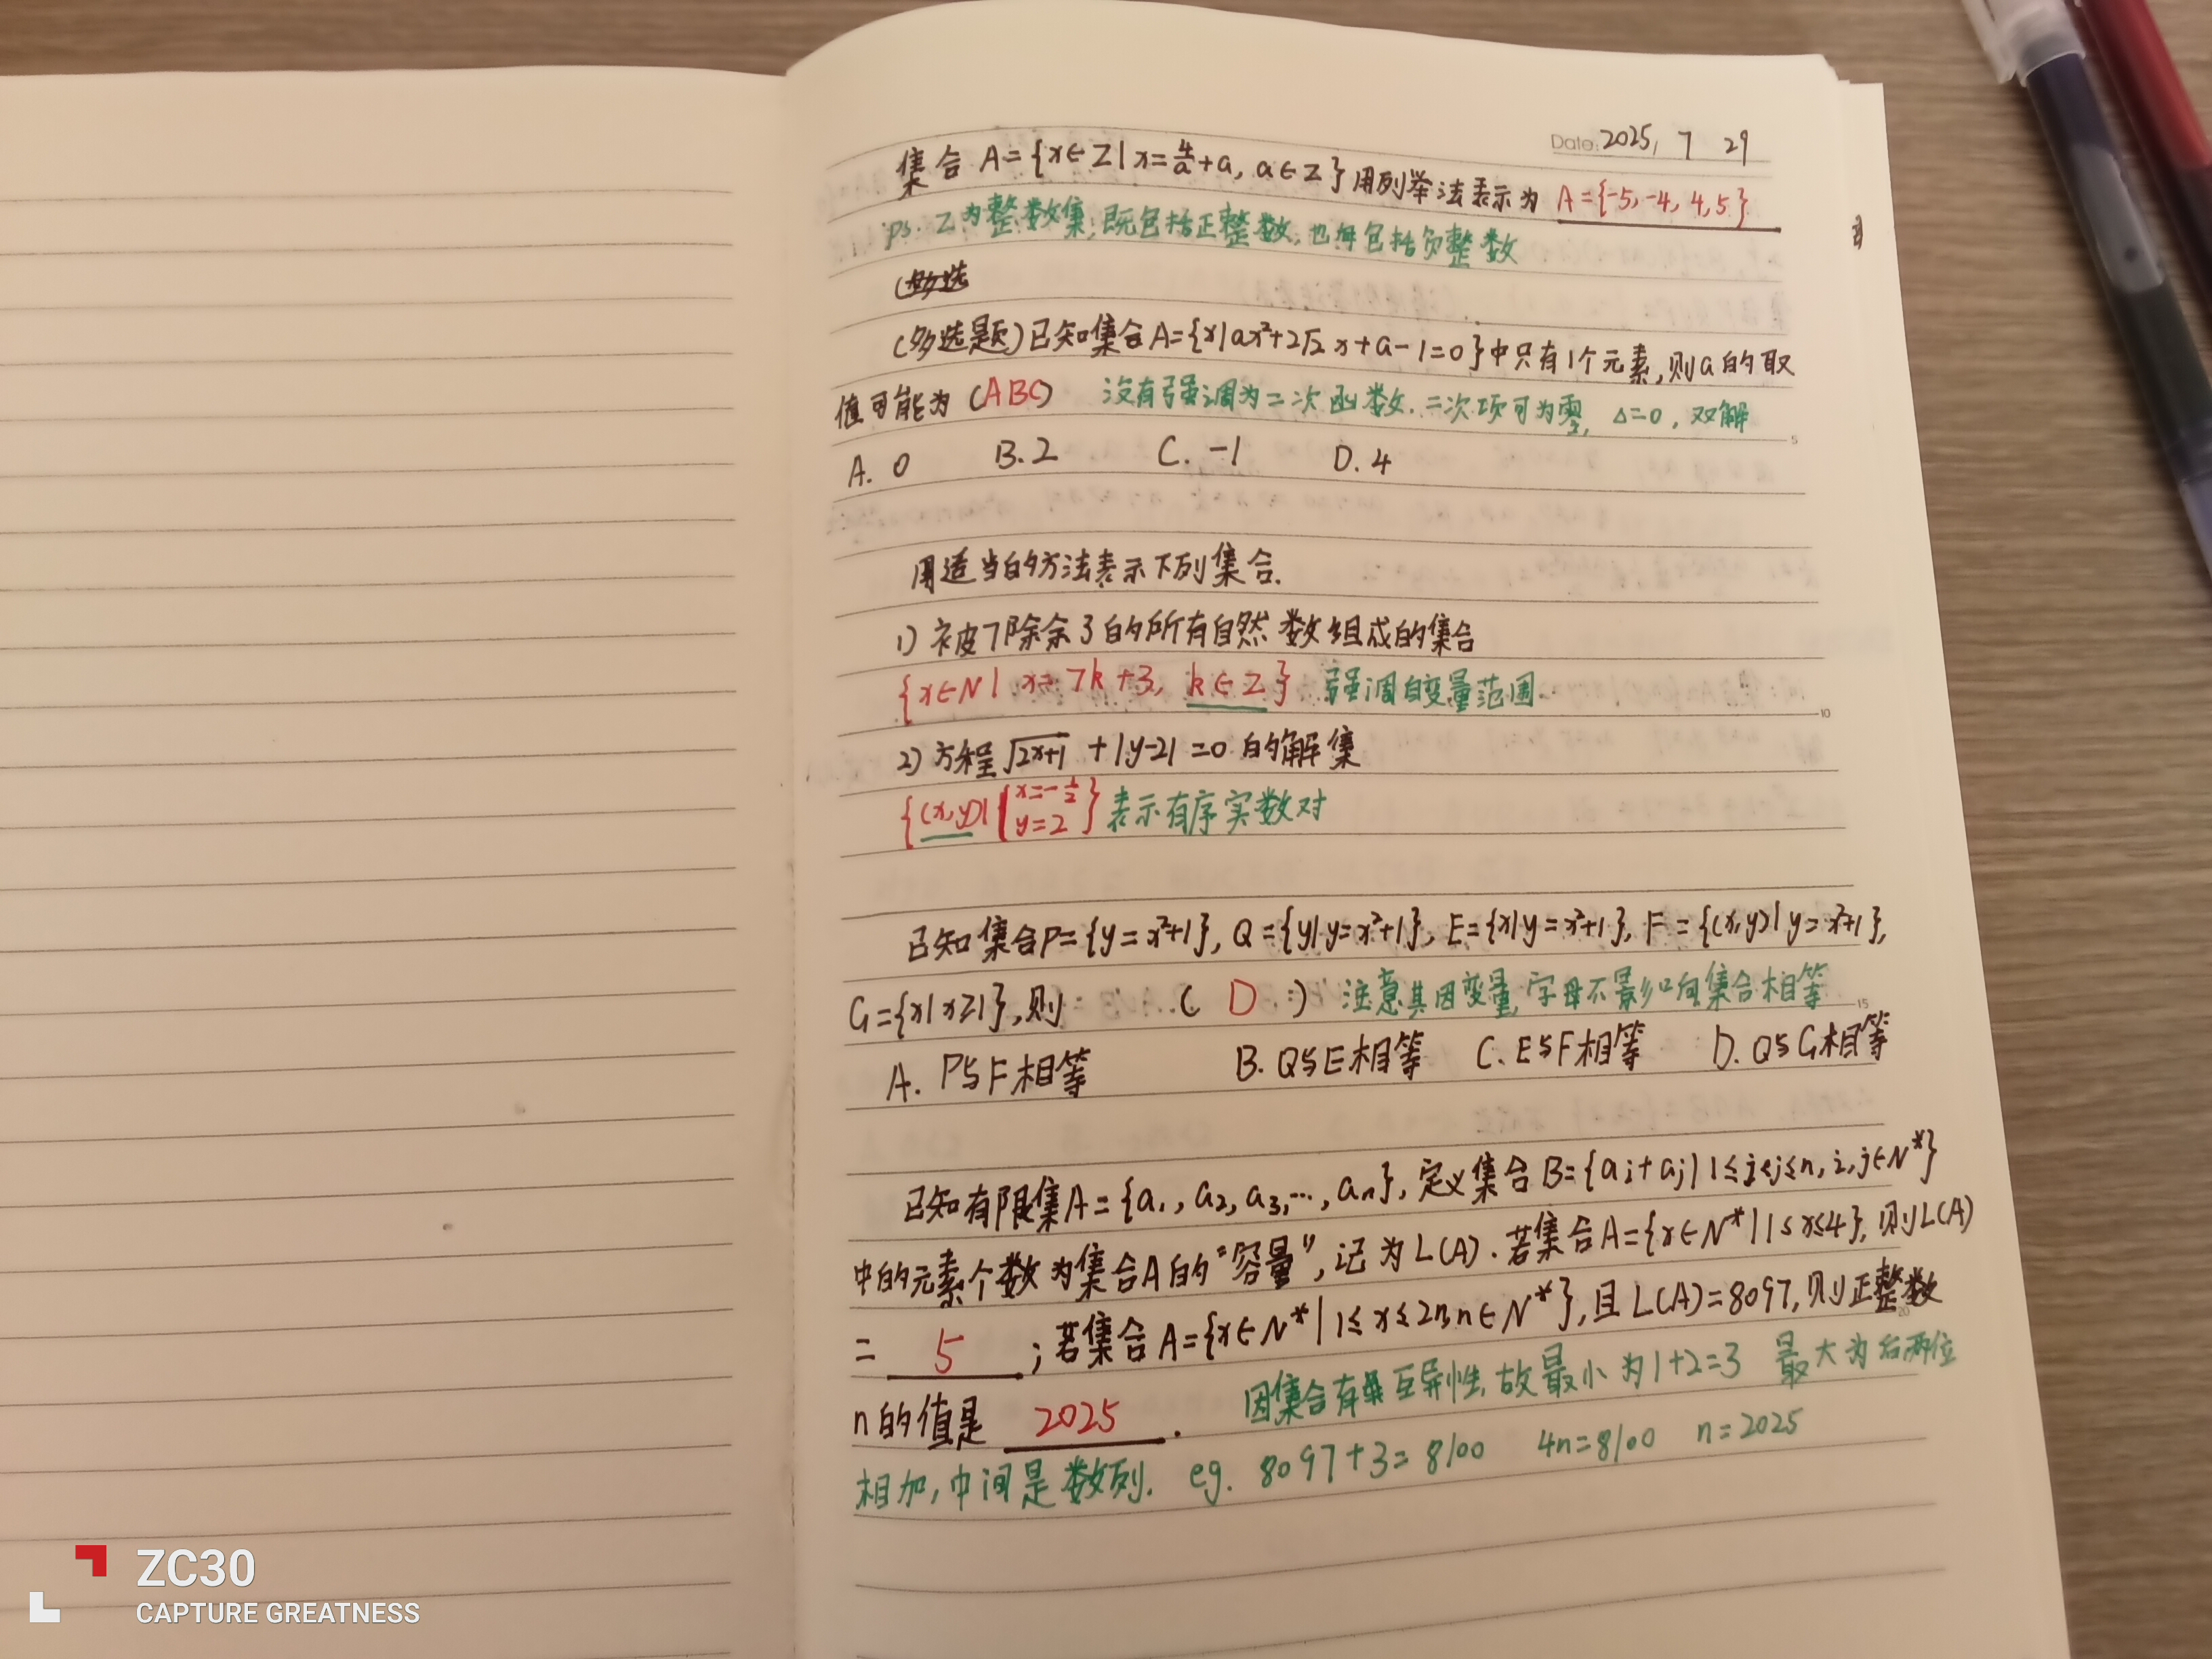 Date: 2025, 7 29
集合 A={x∈Z|x=4/a+a, a∈Z}用列举法表示为 A={-5,-4,4,5}
ps. Z为整数集,既包括正整数,也包括负整数
(多选
(多选题)已知集合A={x|ax²+2√2 x+a-1=0}中只有1个元素,则a的取
值可能为 (ABC) 没有强调为二次函数.二次项可为零, Δ=0, 双解
5
A. 0 B. 2 C. -1 D. 4
用适当的方法表示下列集合.
1) 被7除余3的所有自然数组成的集合
{x∈N| x=7k+3, k∈Z} 强调自变量范围.
10
2) 方程√2x+1 +|y-2|=0 的解集
{(x,y)|{x=-1/2 y=2} 表示有序实数对
已知集合P={y=x²+1}, Q={y|y=x²+1}, E={x|y=x²+1}, F={(x,y)|y=x²+1},
G={x|x≥1},则: ( D :) 注意其因变量,字母不影响集合相等
15
A. P与F相等 B. Q与E相等 C. E与F相等 D. Q与G相等
已知有限集A={a₁, a₂, a₃,…, aₙ}, 定义集合B={aᵢ+aⱼ| 1≤i<j≤n, i,j∈N*}
中的元素个数为集合A的"容量",记为L(A). 若集合A={x∈N*|1≤x≤4}, 则L(A)
= 5 ;若集合A={x∈N*|1≤x≤2n,n∈N*},且L(A)=8097,则正整数
20
n的值是 2025 . 因集合有互异性,故最小为1+2=3 最大为后两位
相加,中间是数列. eg. 8097+3=8100 4n=8100 n=2025
ZC30
CAPTURE GREATNESS